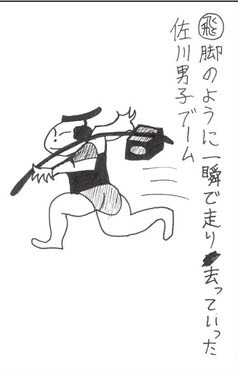 飛脚のように一瞬で走り去っていった
佐川男子ブーム